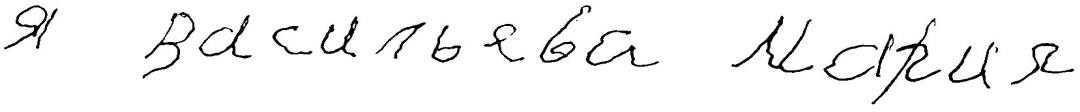 Я Васильева Мария